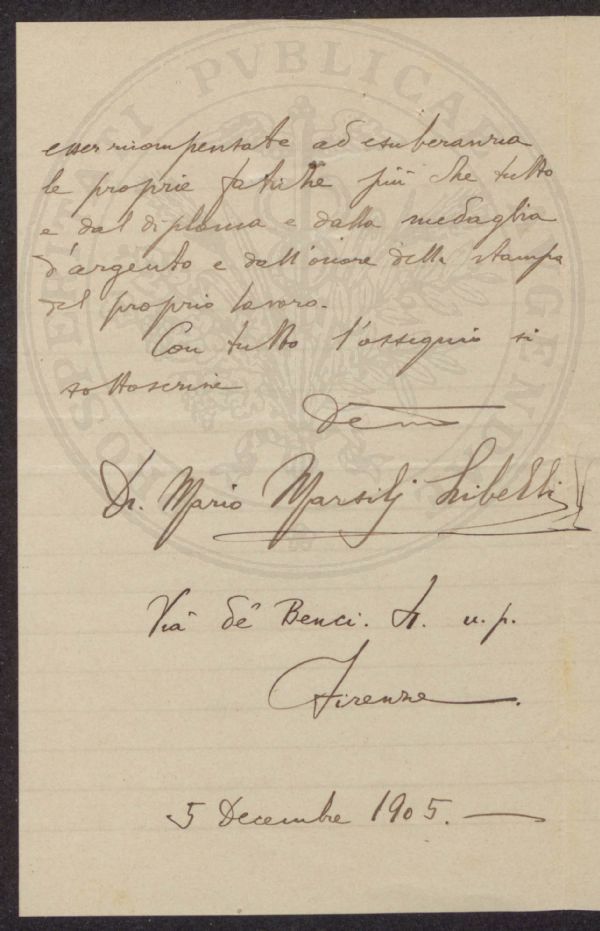 esser ricompensate ad esuberanza
le proprie fatiche più che tutto
e dal diploma e dalla medaglia
d'argento e dall'onore della stampa
del proprio lavoro.
Con tutto l'ossequio si
sottoscrive
Dr. Mario Marsilj Libelli
Via de' Benci. u. p.
Firenze.
5 Decembre 1905.
PROSPERITATI PVBLICAE AVGENDAE